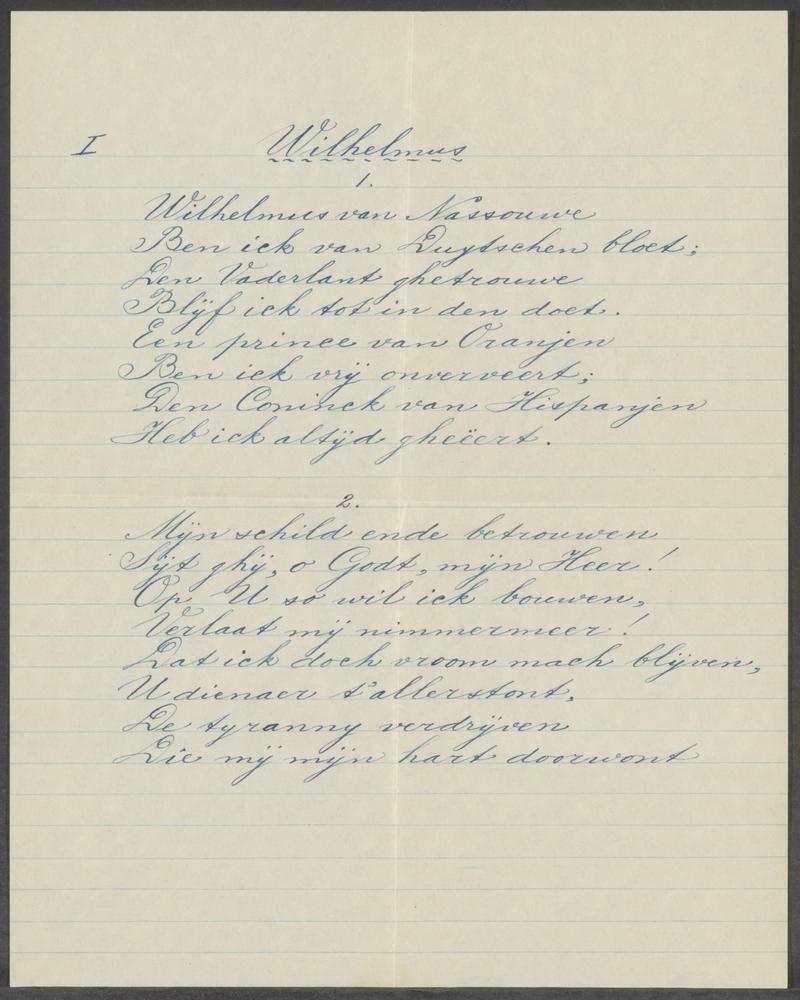 I Wilhelmus
1.
Wilhelmus van Nassouwe
Ben ick van Duytschen bloet;
Den Vaderlant ghetrouwe
Blijf ick tot in den doet.
Een prince van Oranjen
Ben ick vrij onverveert;
Den Coninck van Hispanjen
Heb ick altijd gheëert.
2.
Mijn schild ende betrouwen
Sijt ghij, o Godt, mijn Heer!
Op U so wil ick bouwen,
Verlaat mij nimmermeer!
Dat ick doch vroom mach blijven,
U dienaer t'allerstont,
De tyranny verdrijven
Die mij mijn hart doorwont